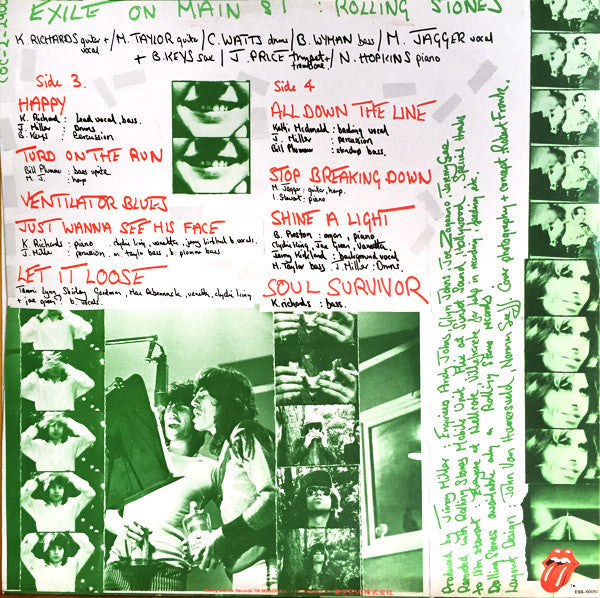 EXILE ON MAIN ST : ROLLING STONES
K. RICHARDS guitar + / M. TAYLOR guitar / C. WATTS drums / B. WYMAN bass / M. JAGGER vocal
vocal
+ B. KEYS sax / J. PRICE trumpet + / N. HOPKINS piano
trombone
Side 3.
HAPPY
K. Richard : lead vocal, bass.
J. Miller : Drums
B. Keys : Percussion
TURD ON THE RUN
Bill Plummer : bass uprite
M. J. : harp
VENTILATOR BLUES
JUST WANNA SEE HIS FACE
K. Richards : piano clydie king, vanetta, jerry kirkland b. vocals.
J. Miller : percussion m. taylor bass, b. plummer bass
LET IT LOOSE
Tammi Lynn, Shirley Goodman, Mac Rebennack, vanetta, clydie king
+ joe green : b. vocals
Side 4
ALL DOWN THE LINE
Kathi Mcdonald : backing vocal
J. Miller : percussion
Bill Plummer : standup bass.
STOP BREAKING DOWN
M. Jagger : guitar, harp.
I. Stewart : piano
SHINE A LIGHT
B. Preston : organ, piano
Clydie King, Joe Green, Vanetta
Jerry Kirkland : background vocal
M. Taylor bass J. Miller : Drums.
SOUL SURVIVOR
K. richards : bass.
Produced by Jimmy Miller Engineers Andy Johns, Glyn Johns, Joe Zagarino, Jeremy Gee
Recorded with Rolling Stones Mobile Unit Also at Sunset Sound, Hollywood. Special thanks
to Ian Stewart
Rolling Stones available only on Rolling Stones records
Layout Design : John Van Hamersveld / Norman Seeff Cover photography + concept Robert Frank.
COC-2-2900